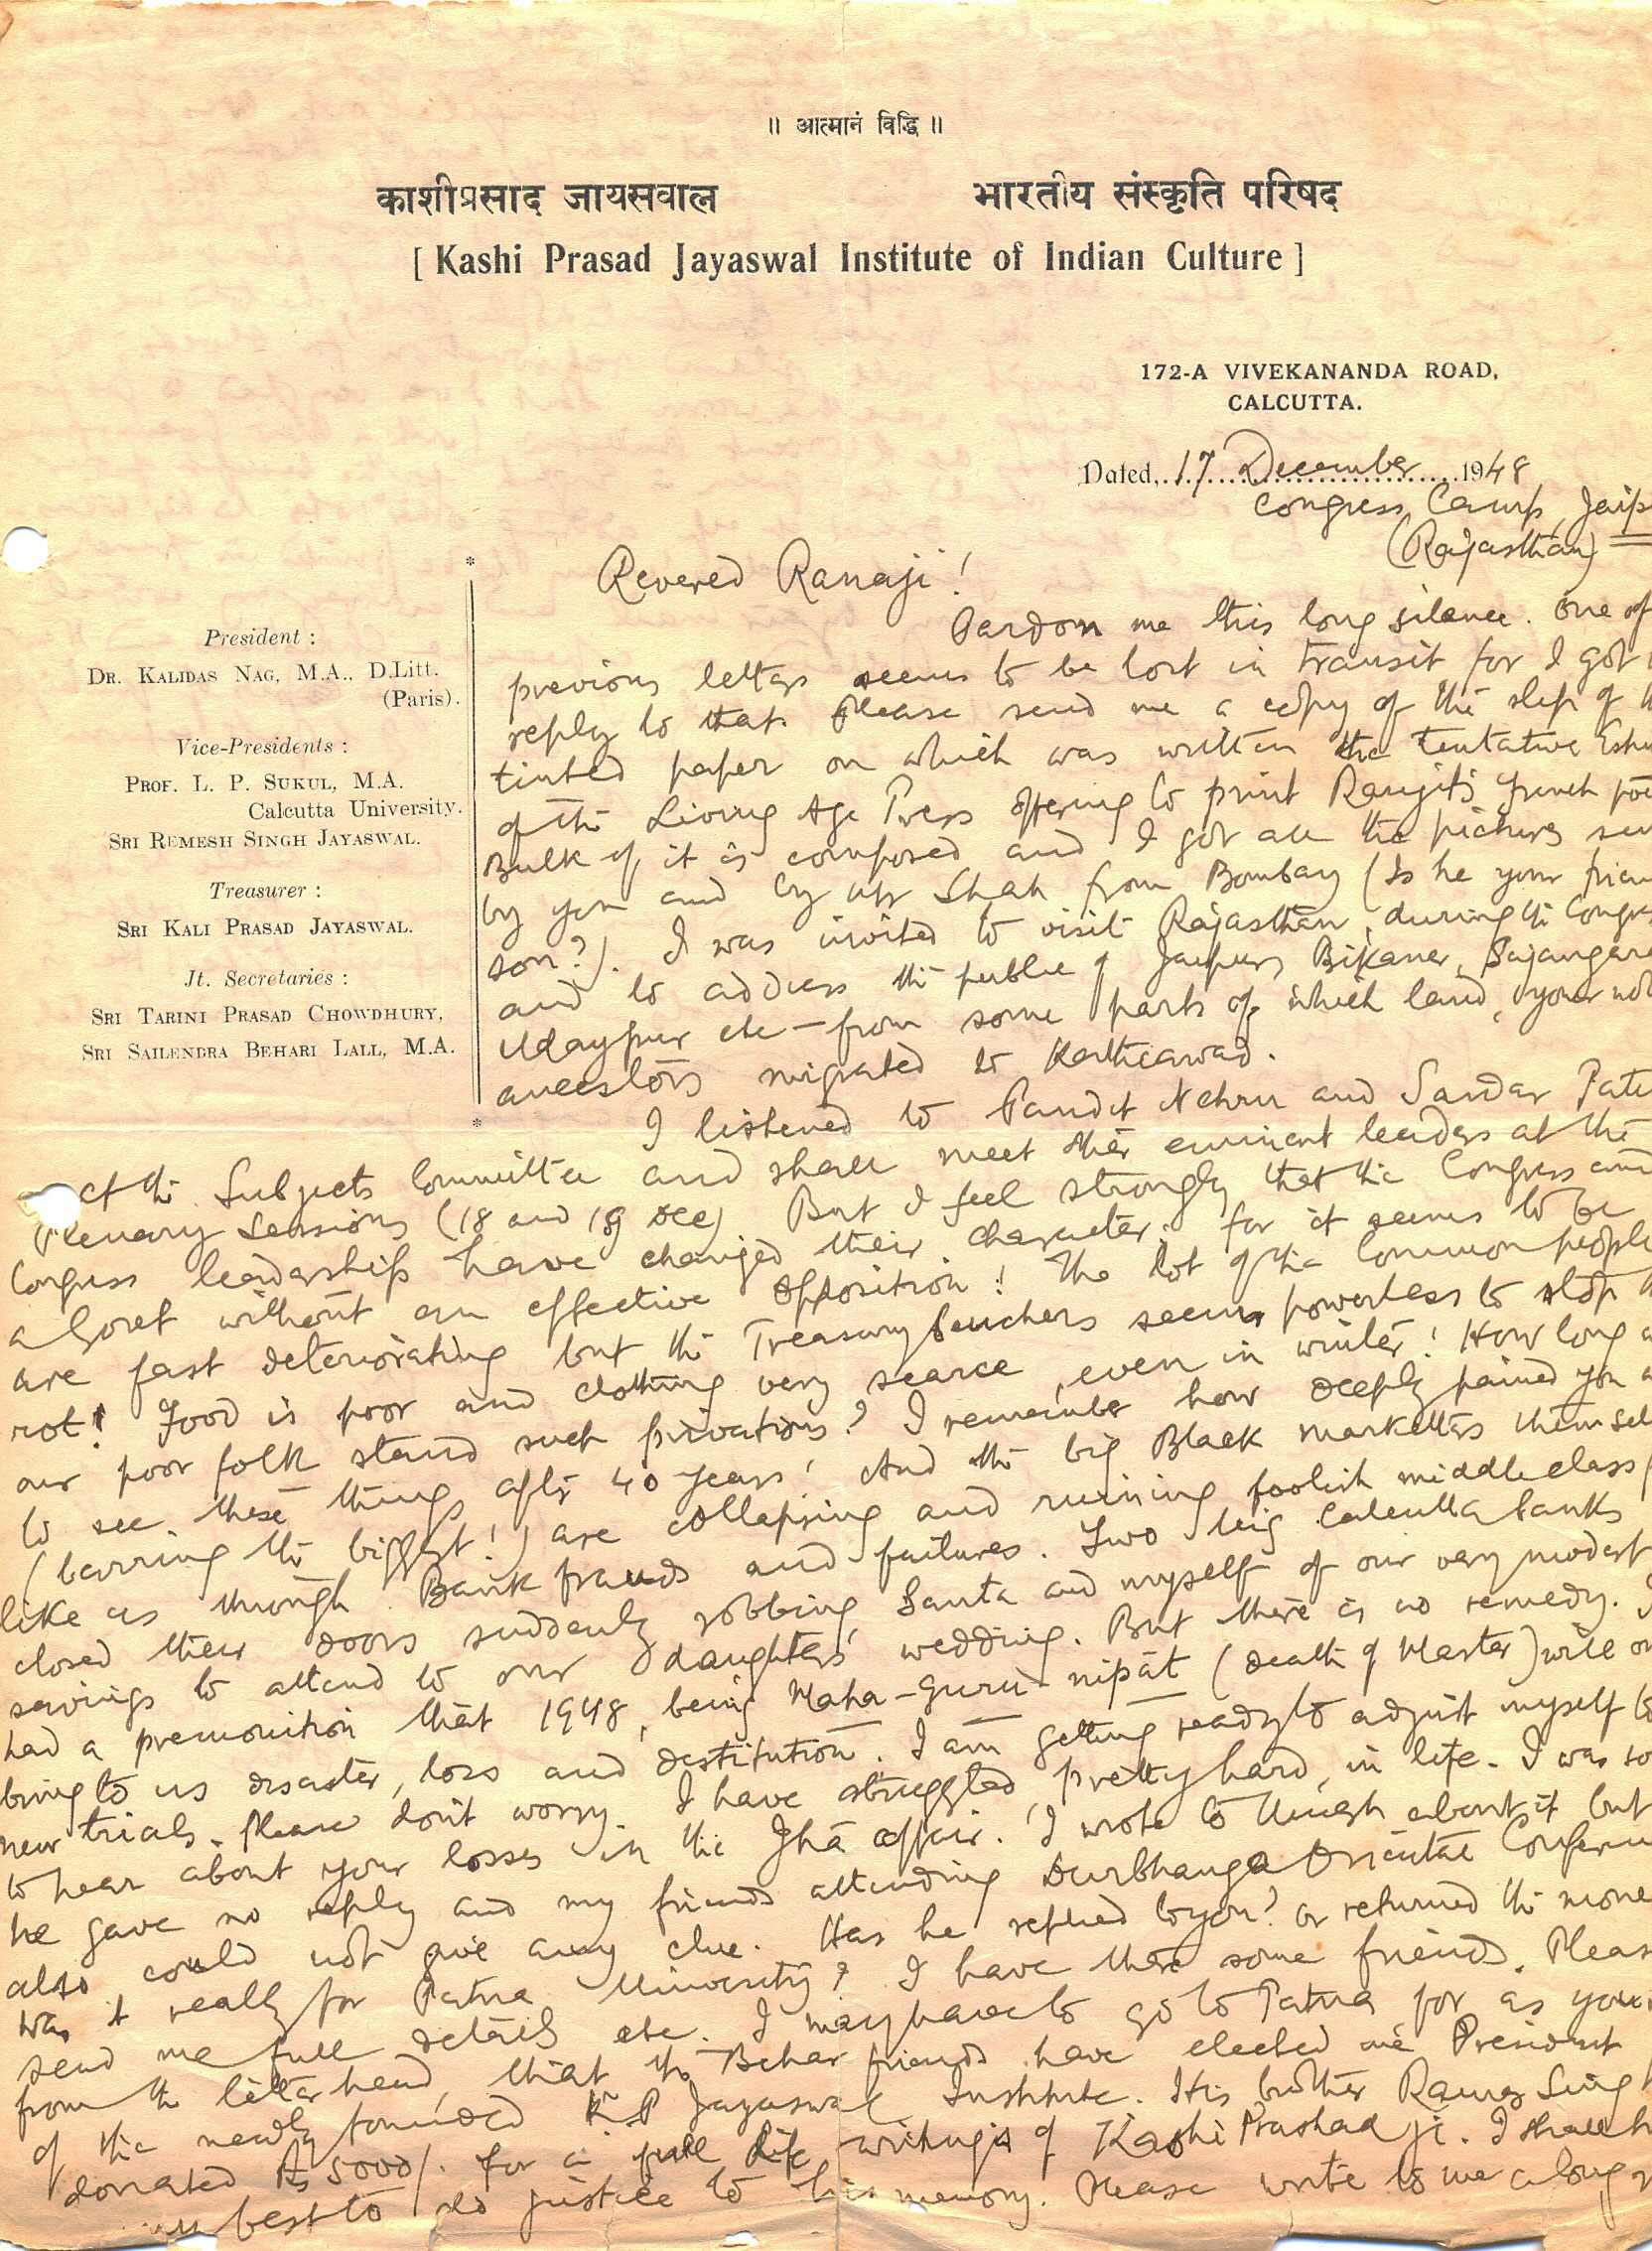 ॥ आत्मानं विद्धि ॥
काशीप्रसाद जायसवाल भारतीय संस्कृति परिषद
[ Kashi Prasad Jayaswal Institute of Indian Culture ]
172-A VIVEKANANDA ROAD,
CALCUTTA.
Dated, 17 December 1948
Congress Camp, Jaip
(Rajasthan)
President :
DR. KALIDAS NAG, M.A., D.Litt.
(Paris).
Vice-Presidents :
PROF. L. P. SUKUL, M.A.
Calcutta University.
SRI REMESH SINGH JAYASWAL.
Treasurer :
SRI KALI PRASAD JAYASWAL.
Jt. Secretaries :
SRI TARINI PRASAD CHOWDHURY,
SRI SAILENDRA BEHARI LALL, M.A.
Revered Ranaji!
Pardon me this long silence. One of
previous letters seems to be lost in transit for I got
reply to that. Please send me a copy of the slip of
tinted paper on which was written the tentative
of the Living Age Press offering to print Ranjit's French
Bulk of it is composed and I got all the pictures
by you and by Mr Shah from Bombay (Is he your
son?). I was invited to visit Rajasthan, during the Congre
and to address the public of Jaipur, Bikaner,
Udaypur etc — from some parts of which land, your
ancestors migrated to Kathiawad.
I listened to Pandit Nehru and Sardar Pate
at the Subjects Committee and shall meet other eminent leaders at the
Plenary Sessions (18 and 19 Dec) But I feel strongly that the Congress and
Congress leadership have changed their character, for it seems to be
a Soviet without an effective opposition! The lot of the Common people
are fast deteriorating but the Treasury benchers seem powerless to stop
rot! Food is poor and clothing very scarce, even in winter! How long
our poor folk stand such privations? I remember how deeply pained you
to see these things after 40 years! And the big Black marketters themsel
(barring the biggest!) are collapsing and ruining foolish middle class
like us through Bank frauds and failures. Two big Calcutta banks
closed their doors suddenly robbing Santa and myself of our very modest
savings to attend to our daughters' wedding. But there is no remedy.
had a premonition that 1948, being Maha-guru-nipāt (death of Master) will
bring to us disaster, loss and destitution. I am getting ready to adjust myself to
new trials. Please don't worry. I have struggled pretty hard, in life. I was
to hear about your losses in the Jhā affair. I wrote to about it but
he gave no reply and my friends attending Durbhanga Oriental Conferen
also could not give any clue. Has he replied to you? or returned the mone
Was it really for Patna University? I have there some friends. Pleas
send me full details etc. I may have to go to Patna for as you
from the letter head, that the Behar friends have elected me President
of the newly founded K P Jayaswal Institute. His brother Sing
donated Rs 5000/. for a full life writings of Kashi Prashad ji. I shall
my best to do justice to his memory. Please write to me a long